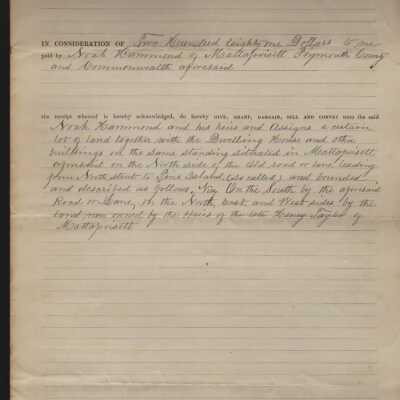 IN CONSIDERATION OF Two Hundred Eighty one Dollars to me
paid by Noah Hammond of Mattapoisett Plymouth County
and Commonwealth aforesaid
the receipt whereof is hereby acknowledged, do hereby GIVE, GRANT, BARGAIN, SELL AND CONVEY unto the said
Noah Hammond and his heirs and Assigns a certain
lot of land together with the Dwelling House and other
buildings on the same standing situated in Mattapoisett
aforesaid on the North side of the old road or lane leading
from North street to Pine Island (so called) and bounded
and described as follows, Viz, On the South by the aforesaid
Road or Lane, on the North, East and West sides by the
Land now owned by the Heirs of the late Henry Taylor of
Mattapoisett